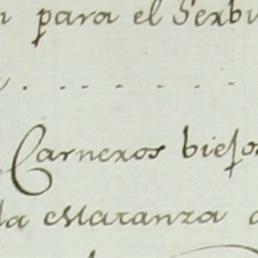 para el Serbi
Carneros biejos
la Matanza